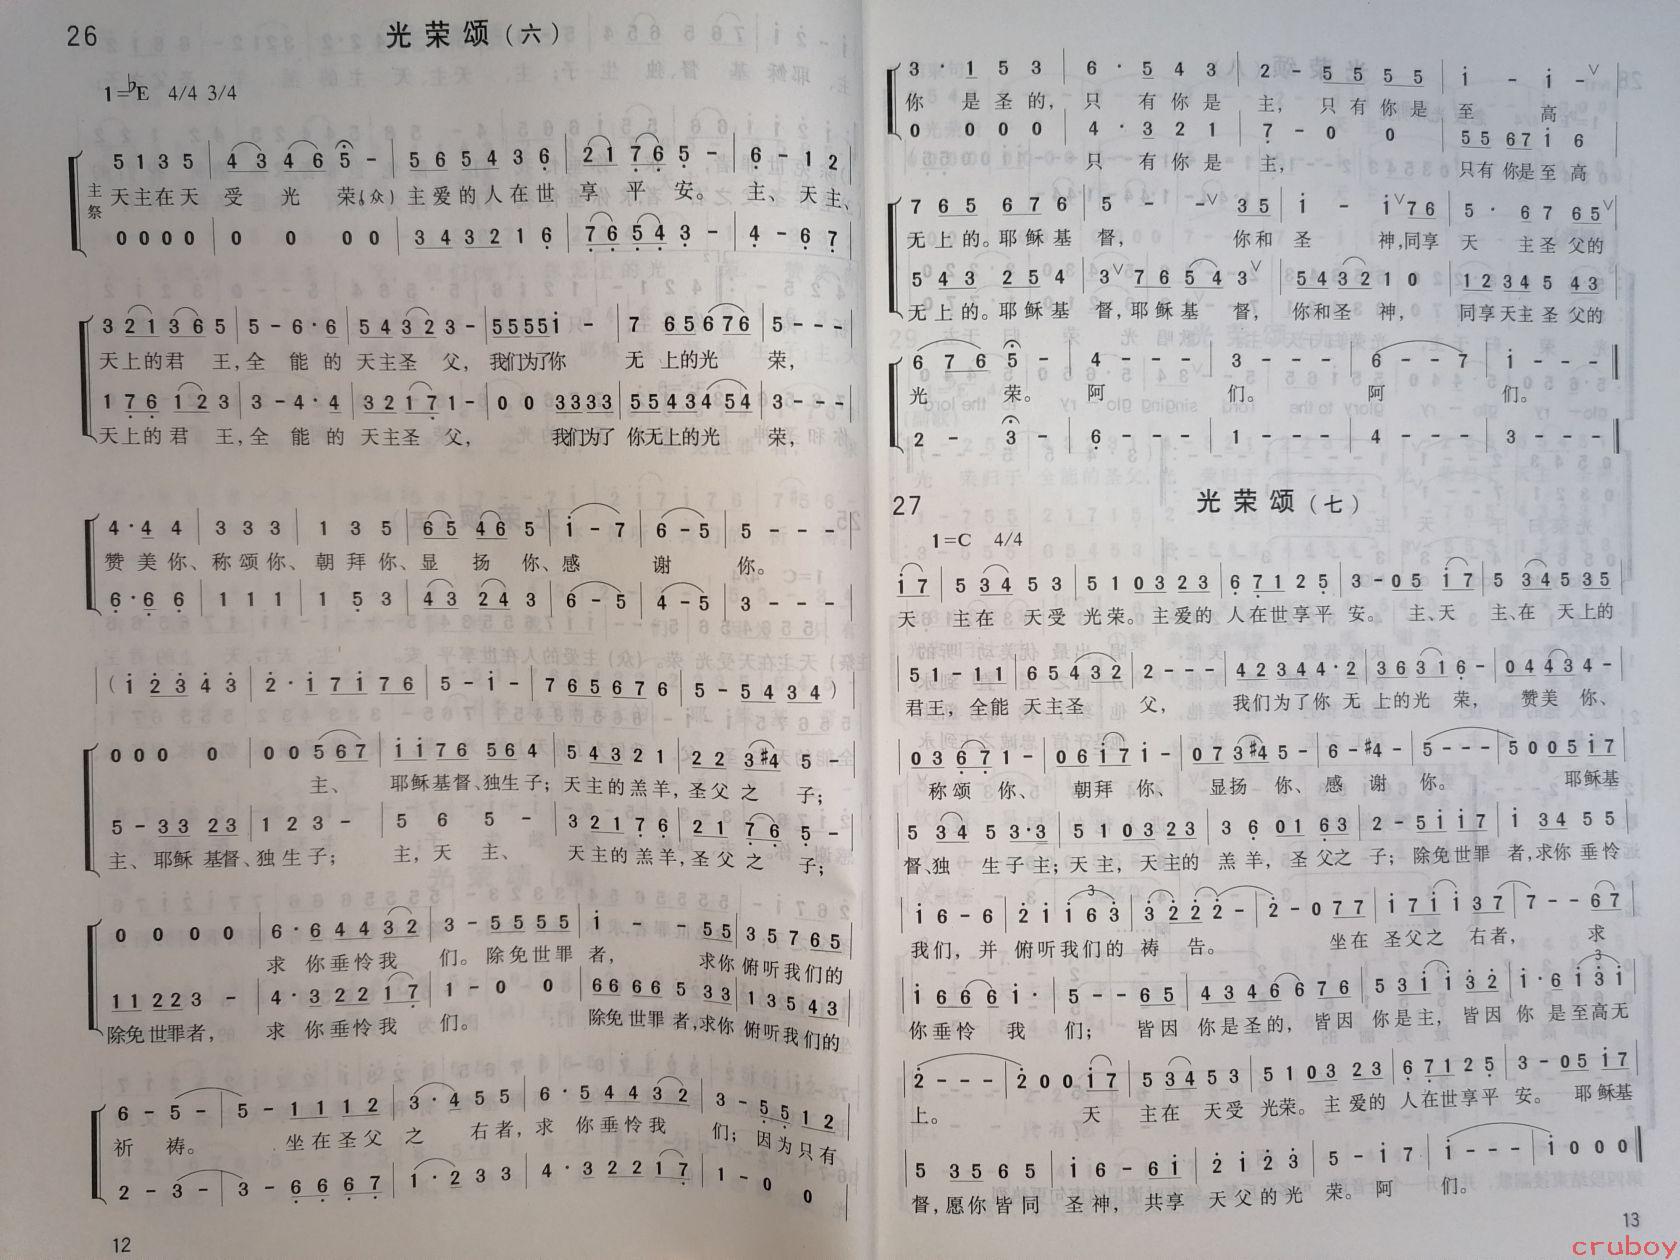 26 光荣颂(六)
1=♭E 4/4 3/4
主祭
5 1 3 5 | 4 3 4 6 5 - | 5 6 5 4 3 6 | 2 1 7 6 5 - | 6 - 1 2
天主在天 受 光 荣。(众)主爱的人在世 享 平 安。 主、天主、
0 0 0 0 | 0 0 0 0 | 3 4 3 2 1 6 | 7 6 5 4 3 - | 4 - 6 7
3 2 1 3 6 5 | 5 - 6 · 6 | 5 4 3 2 3 - | 5 5 5 5 i - | 7 6 5 6 7 6 | 5 - - -
天上的君 王,全 能 的 天主圣 父, 我们为了你 无 上的光 荣,
1 7 6 1 2 3 | 3 - 4 · 4 | 3 2 1 7 1 - | 0 0 3 3 3 3 | 5 5 4 3 4 5 4 | 3 - - -
天上的君 王,全 能 的 天主圣 父, 我们为了 你无上的光 荣,
4 · 4 4 | 3 3 3 | 1 3 5 | 6 5 4 6 5 | i - 7 | 6 - 5 | 5 - - -
赞 美 你、称 颂 你、 朝 拜 你、显 扬 你、感 谢 你。
6 · 6 6 | 1 1 1 | 1 5 3 | 4 3 2 4 3 | 6 - 5 | 4 - 5 | 3 - - -
( i 2 3 4 3 | 2 · i 7 i 7 6 | 5 - i - | 7 6 5 6 7 6 | 5 - 5 4 3 4 )
0 0 0 0 | 0 0 5 6 7 | i i 7 6 5 6 4 | 5 4 3 2 1 | 2 2 3 #4 5 -
主、 耶稣基督、独生子; 天主的羔羊,圣父 之 子;
5 - 3 3 2 3 | 1 2 3 - | 5 6 5 - | 3 2 1 7 6 | 2 1 7 6 5 -
主、耶稣 基督、独 生 子; 主,天 主、 天主的 羔羊,圣父 之 子;
0 0 0 0 | 6 · 6 4 4 3 2 | 3 - 5 5 5 5 | i - - 5 5 | 3 5 7 6 5
求 你垂怜我 们。除免世罪 者, 求你 俯听我们的
1 1 2 2 3 - | 4 · 3 2 2 1 7 | 1 - 0 0 | 6 6 6 6 5 3 3 | 1 3 5 4 3
除免世罪者, 求 你垂怜我 们。 除免世罪 者,求你 俯听我们的
6 - 5 - | 5 - 1 1 1 2 | 3 · 4 5 5 | 6 · 5 4 4 3 2 | 3 - 5 5 1 2
祈 祷。 坐在圣父 之 右者,求 你垂怜我 们; 因为只有
2 - 3 - | 3 - 6 6 6 7 | 1 · 2 3 3 | 4 · 3 2 2 1 7 | 1 - 0 0
12
3 · 1 5 3 | 6 · 5 4 3 | 2 - 5 5 5 5 | i - i - ∨
你 是 圣 的, 只 有 你 是 主, 只 有 你 是 至 高
0 0 0 0 | 4 · 3 2 1 | 7 - 0 0 | 5 5 6 7 i 6
只 有 你 是 主, 只有你是至高
7 6 5 6 7 6 | 5 - - ∨ 3 5 | i - i ∨ 7 6 | 5 · 6 7 6 5 ∨
无上的。耶稣基 督, 你和 圣 神,同享 天 主圣父的
5 4 3 2 5 4 | 3 ∨ 7 6 5 4 3 ∨ | 5 4 3 2 1 0 | 1 2 3 4 5 4 3
无上的。耶稣基 督,耶稣基 督, 你和圣 神, 同享天主圣父的
6 7 6 5 - | 4 - - - | 3 - - - | 6 - - 7 | i - - -
光 荣。 阿 们。 阿 们。
2 - 3 - | 6 - - - | 1 - - - | 4 - - - | 3 - - -
27 光荣颂(七)
1=C 4/4
i 7 | 5 3 4 5 3 | 5 1 0 3 2 3 | 6 7 1 2 5 | 3 - 0 5 i 7 | 5 3 4 5 3 5
天 主在 天受 光荣。主爱的 人在世享平 安。 主、天 主、在 天上的
5 1 - 1 1 | 6 5 4 3 2 | 2 - - - | 4 2 3 4 4 · 2 | 3 6 3 1 6 - | 0 4 4 3 4 -
君王,全能 天主圣 父, 我们为了你 无 上的光 荣, 赞美 你、
0 3 6 7 1 - | 0 6 i 7 i - | 0 7 3 #4 5 - | 6 - #4 - | 5 - - - | 5 0 0 5 i 7
称颂 你、 朝拜 你、 显扬 你、感 谢 你。 耶稣基
5 3 4 5 3 · 3 | 5 1 0 3 2 3 | 3 6 0 1 6 3 | 2 - 5 i i 7 | i 3 4 5 5
督、独 生子主;天主,天主的 羔羊,圣父之 子;除免世罪 者,求你 垂怜
i 6 - 6 | 2 i i 6 3 | 3 2 2 2 - | 2 - 0 7 7 | i 7 i i 3 7 | 7 - - 6 7
我们,并 俯听我们的 祷 告。 坐在 圣父之 右者, 求
i 6 6 6 i · | 5 - - 6 5 | 4 3 4 6 6 7 6 | 5 3 i i 3 2 | i · 6 i 3 i
你垂怜 我 们; 皆因 你是圣的,皆因 你是主,皆因 你 是至高无
2 - - - | 2 0 0 i 7 | 5 3 4 5 3 | 5 1 0 3 2 3 | 6 7 1 2 5 | 3 - 0 5 i 7
上。 天 主在 天受 光荣。主爱的 人在世享平 安。 耶稣基
5 3 5 6 5 | i 6 - 6 i | 2 i 2 3 | 5 - i 7 | i - - - | i 0 0 0
督,愿你皆同 圣神,共享 天父的光 荣。阿 们。
13
cruboy